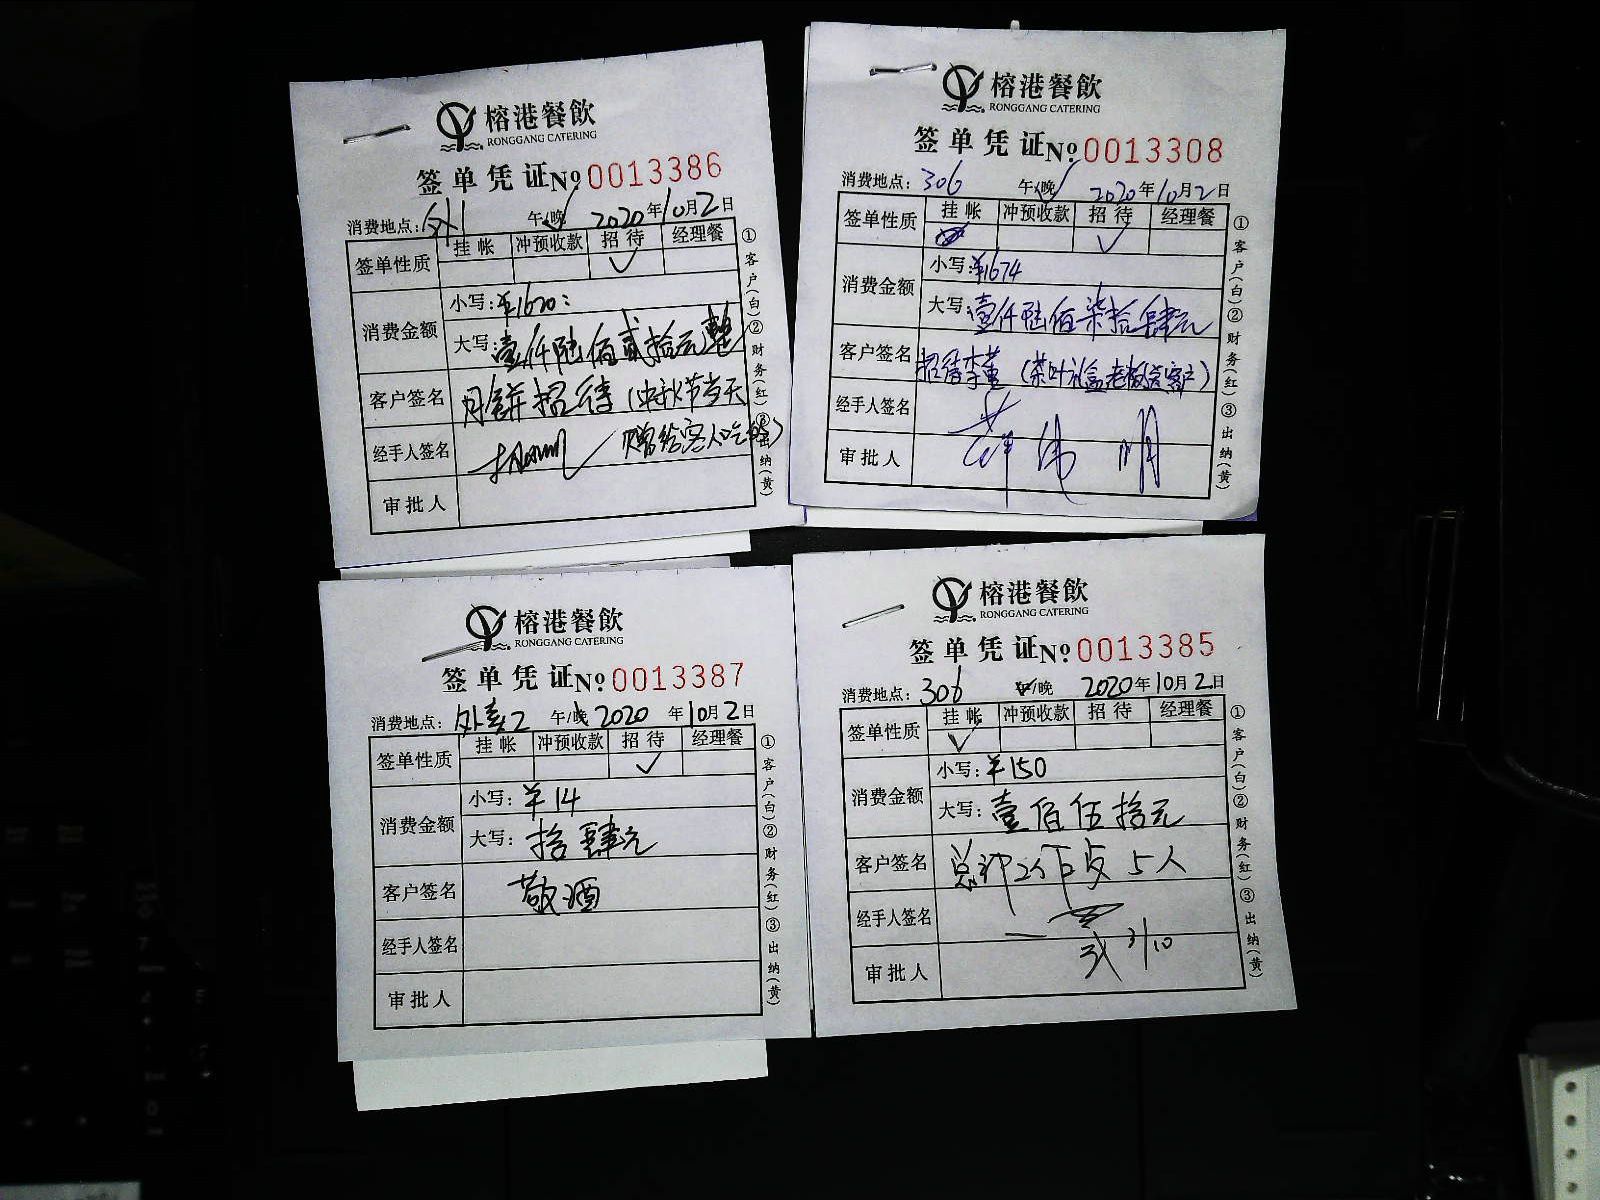 榕港餐飲
RONGGANG CATERING
签单凭证№ 0013386
消费地点：外1 午/晚 2020年10月2日
签单性质 挂帐 冲预收款 招待 经理餐
✓
消费金额 小写：¥1620：
大写：壹仟陆佰贰拾元整
客户签名 月餅招待（中秋节当天
经手人签名 赠给客人吃
审批人
①客户（白）②财务（红）③出纳（黄）
榕港餐飲
RONGGANG CATERING
签单凭证№ 0013308
消费地点：306 午/晚 2020年10月2日
签单性质 挂帐 冲预收款 招待 经理餐
✓
消费金额 小写：¥1674
大写：壹仟陆佰柒拾肆元
客户签名 招待李董（茶叶礼盒老板送客户）
经手人签名
审批人
①客户（白）②财务（红）③出纳（黄）
榕港餐飲
RONGGANG CATERING
签单凭证№ 0013387
消费地点：外卖2 午/晚 2020年10月2日
签单性质 挂帐 冲预收款 招待 经理餐
✓
消费金额 小写：¥14
大写：拾肆元
客户签名 敬酒
经手人签名
审批人
①客户（白）②财务（红）③出纳（黄）
榕港餐飲
RONGGANG CATERING
签单凭证№ 0013385
消费地点：306 午/晚 2020年10月2日
签单性质 挂帐 冲预收款 招待 经理餐
✓
消费金额 小写：¥150
大写：壹佰伍拾元
客户签名 5人
经手人签名
审批人 3/10
①客户（白）②财务（红）③出纳（黄）